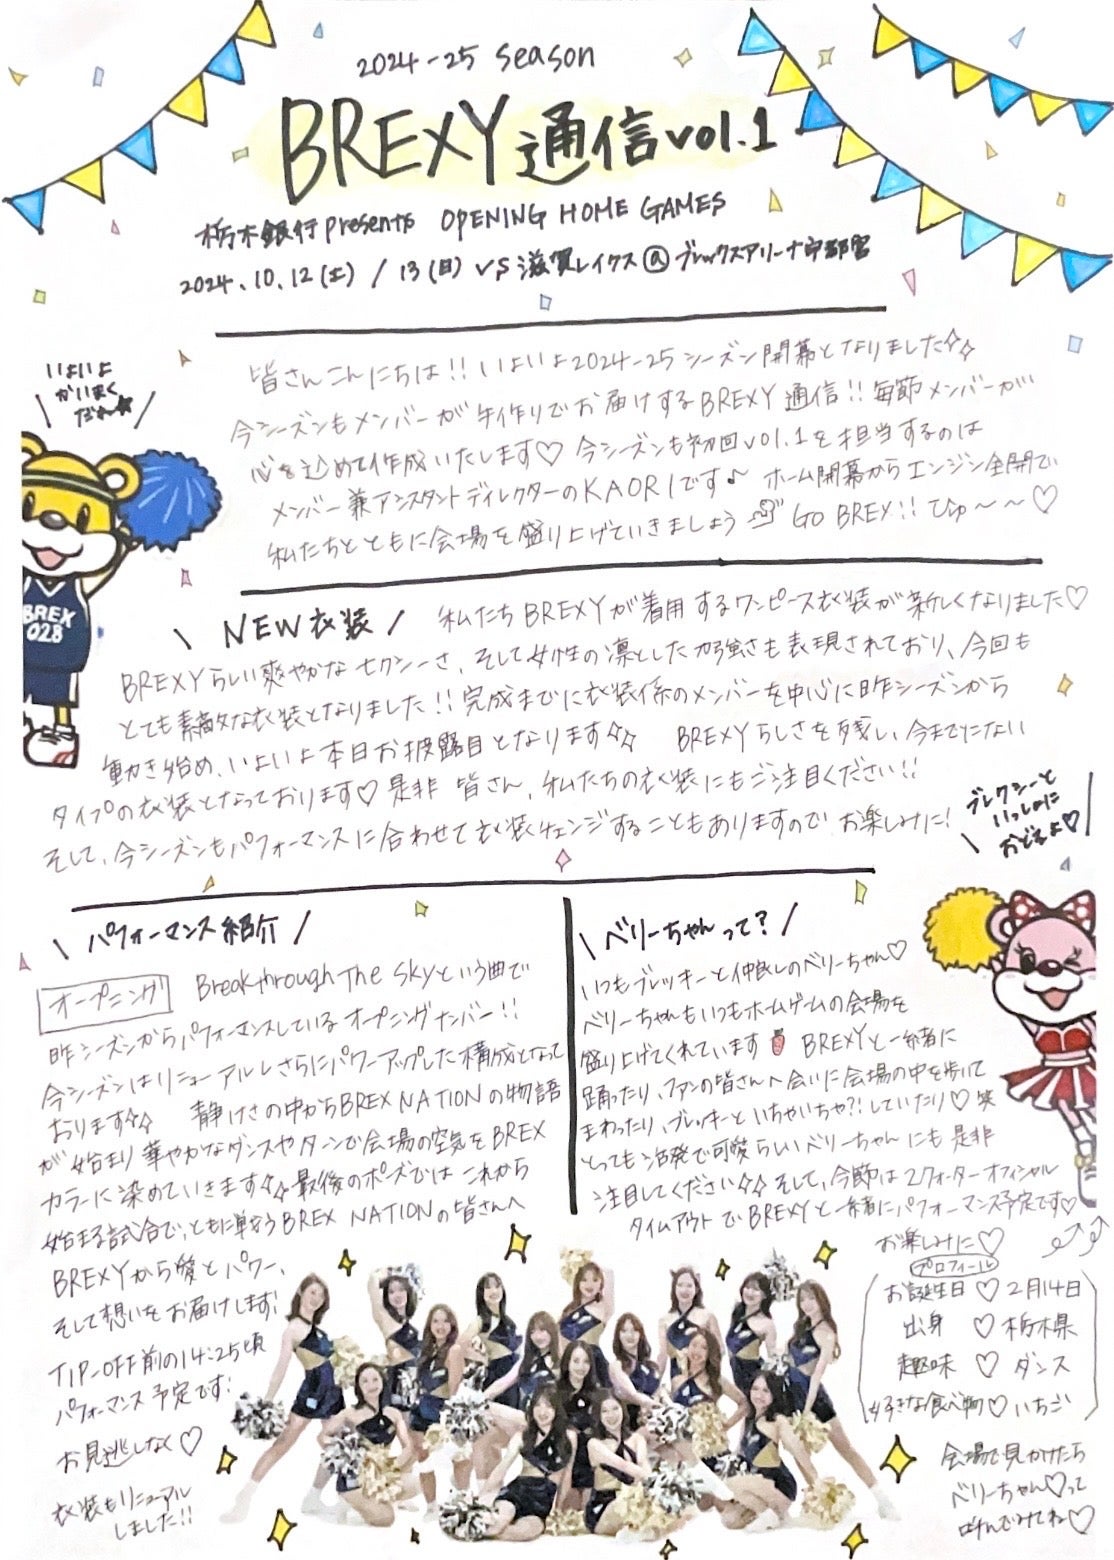 2024-25 season
BREXY 通信 vol.1
栃木銀行 presents OPENING HOME GAMES
2024.10.12(土)/13(日) VS 滋賀レイクス @ ブレックスアリーナ宇都宮
いよいよ
かいまく
だね★
皆さんこんにちは!! いよいよ2024-25シーズン開幕となりました☆☆
今シーズンもメンバーが手作りでお届けするBREXY通信!! 毎節メンバーが
心を込めて作成いたします♡ 今シーズンも初回vol.1を担当するのは
メンバー兼アシスタントディレクターのKAORIです♪ ホーム開幕からエンジン全開で
私たちとともに会場を盛り上げていきましょう GO BREX!! ひゅ〜〜♡
BREX
028
\ NEW衣装 / 私たちBREXYが着用するワンピース衣装が新しくなりました♡
BREXYらしい爽やかなセクシーさ、そして女性の凛とした力強さも表現されており、今回も
とても素敵な衣装となりました!! 完成までに衣装係のメンバーを中心に昨シーズンから
動き始め、いよいよ本日お披露目となります☆☆ BREXYらしさを残し、今までにない
タイプの衣装となっております♡是非 皆さん、私たちの衣装にもご注目ください!!
そして、今シーズンもパフォーマンスに合わせて衣装チェンジすることもありますので お楽しみに!
ブレクシーと
いっしょに
おどるよ♡
\ パフォーマンス紹介 /
オープニング Breakthrough The Skyという曲で
昨シーズンからパフォーマンスしているオープニングナンバー!!
今シーズンはリニューアルしさらにパワーアップした構成となって
おります☆☆ 静けさの中からBREX NATIONの物語
が始まり華やかなダンスやターンで会場の空気をBREX
カラーに染めていきます☆☆最後のポーズではこれから
始まる試合で、ともに戦うBREX NATIONの皆さんへ
BREXYから愛とパワー、
そして想いをお届けします!
TIP-OFF前の14:25頃
パフォーマンス予定です!
お見逃しなく♡
衣装もリニューアル
しました!!
\ ベリーちゃんって? /
いつもブレッキーと仲良しのベリーちゃん♡
ベリーちゃんもいつもホームゲームの会場を
盛り上げてくれています BREXYと一緒に
踊ったり、ファンの皆さんへ会いに会場の中を歩いて
まわったり、ブレッキーといちゃいちゃ?!していたり♡笑
とっても活発で可愛らしいベリーちゃんにも是非
注目してください☆☆ そして、今節は2クォーターオフィシャル
タイムアウトでBREXYと一緒にパフォーマンス予定です♡
お楽しみに♡
プロフィール
お誕生日♡2月14日
出身♡栃木県
趣味♡ダンス
好きな食べ物♡いちご
会場で見かけたら
ベリーちゃん♡って
呼んでみてね♡